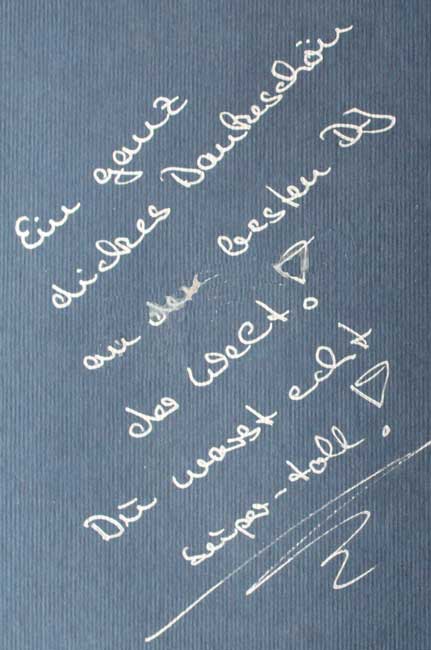 Ein ganz
dickes Dankeschön
an den besten DJ
der Welt!
Du warst echt
super-toll!